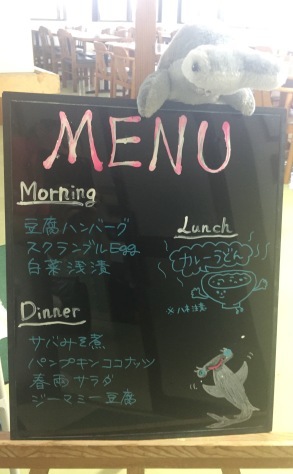 MENU
Morning
豆腐ハンバーグ
スクランブルEgg
白菜浅漬
Lunch
カレーうどん
※ハネ注意
Dinner
サバみそ煮
パンプキンココナッツ
春雨サラダ
ジーマミー豆腐